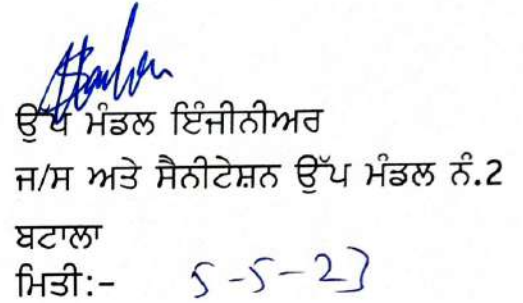 ਉੱਪ ਮੰਡਲ ਇੰਜੀਨੀਅਰ
ਜ/ਸ ਅਤੇ ਸੈਨੀਟੇਸ਼ਨ ਉੱਪ ਮੰਡਲ ਨੰ.2
ਬਟਾਲਾ
ਮਿਤੀ:- 5-5-23